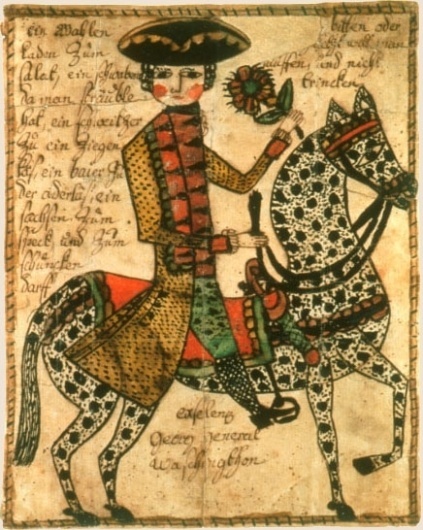 ein Wahlen
laden zum
salat, ein schwaben
da man
hat, ein schweitzer
zu ein ziegen
käs, ein baier zu
der aderlas, ein
sachsen zum
speck und zum
schuncken
darf
bitten oder
will man
und nicht
trincken
exselenz
Georg General
Waschingthon